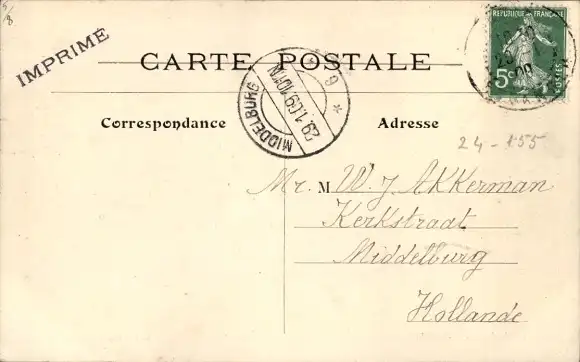 5/8
IMPRIMÉ
CARTE POSTALE
REPUBLIQUE FRANÇAISE
5c
POSTES
MIDDELBURG
29.1.09.10
Correspondance
Adresse
24-155
Mr. M W. J. Akkerman
Kerkstraat
Middelburg
Hollande